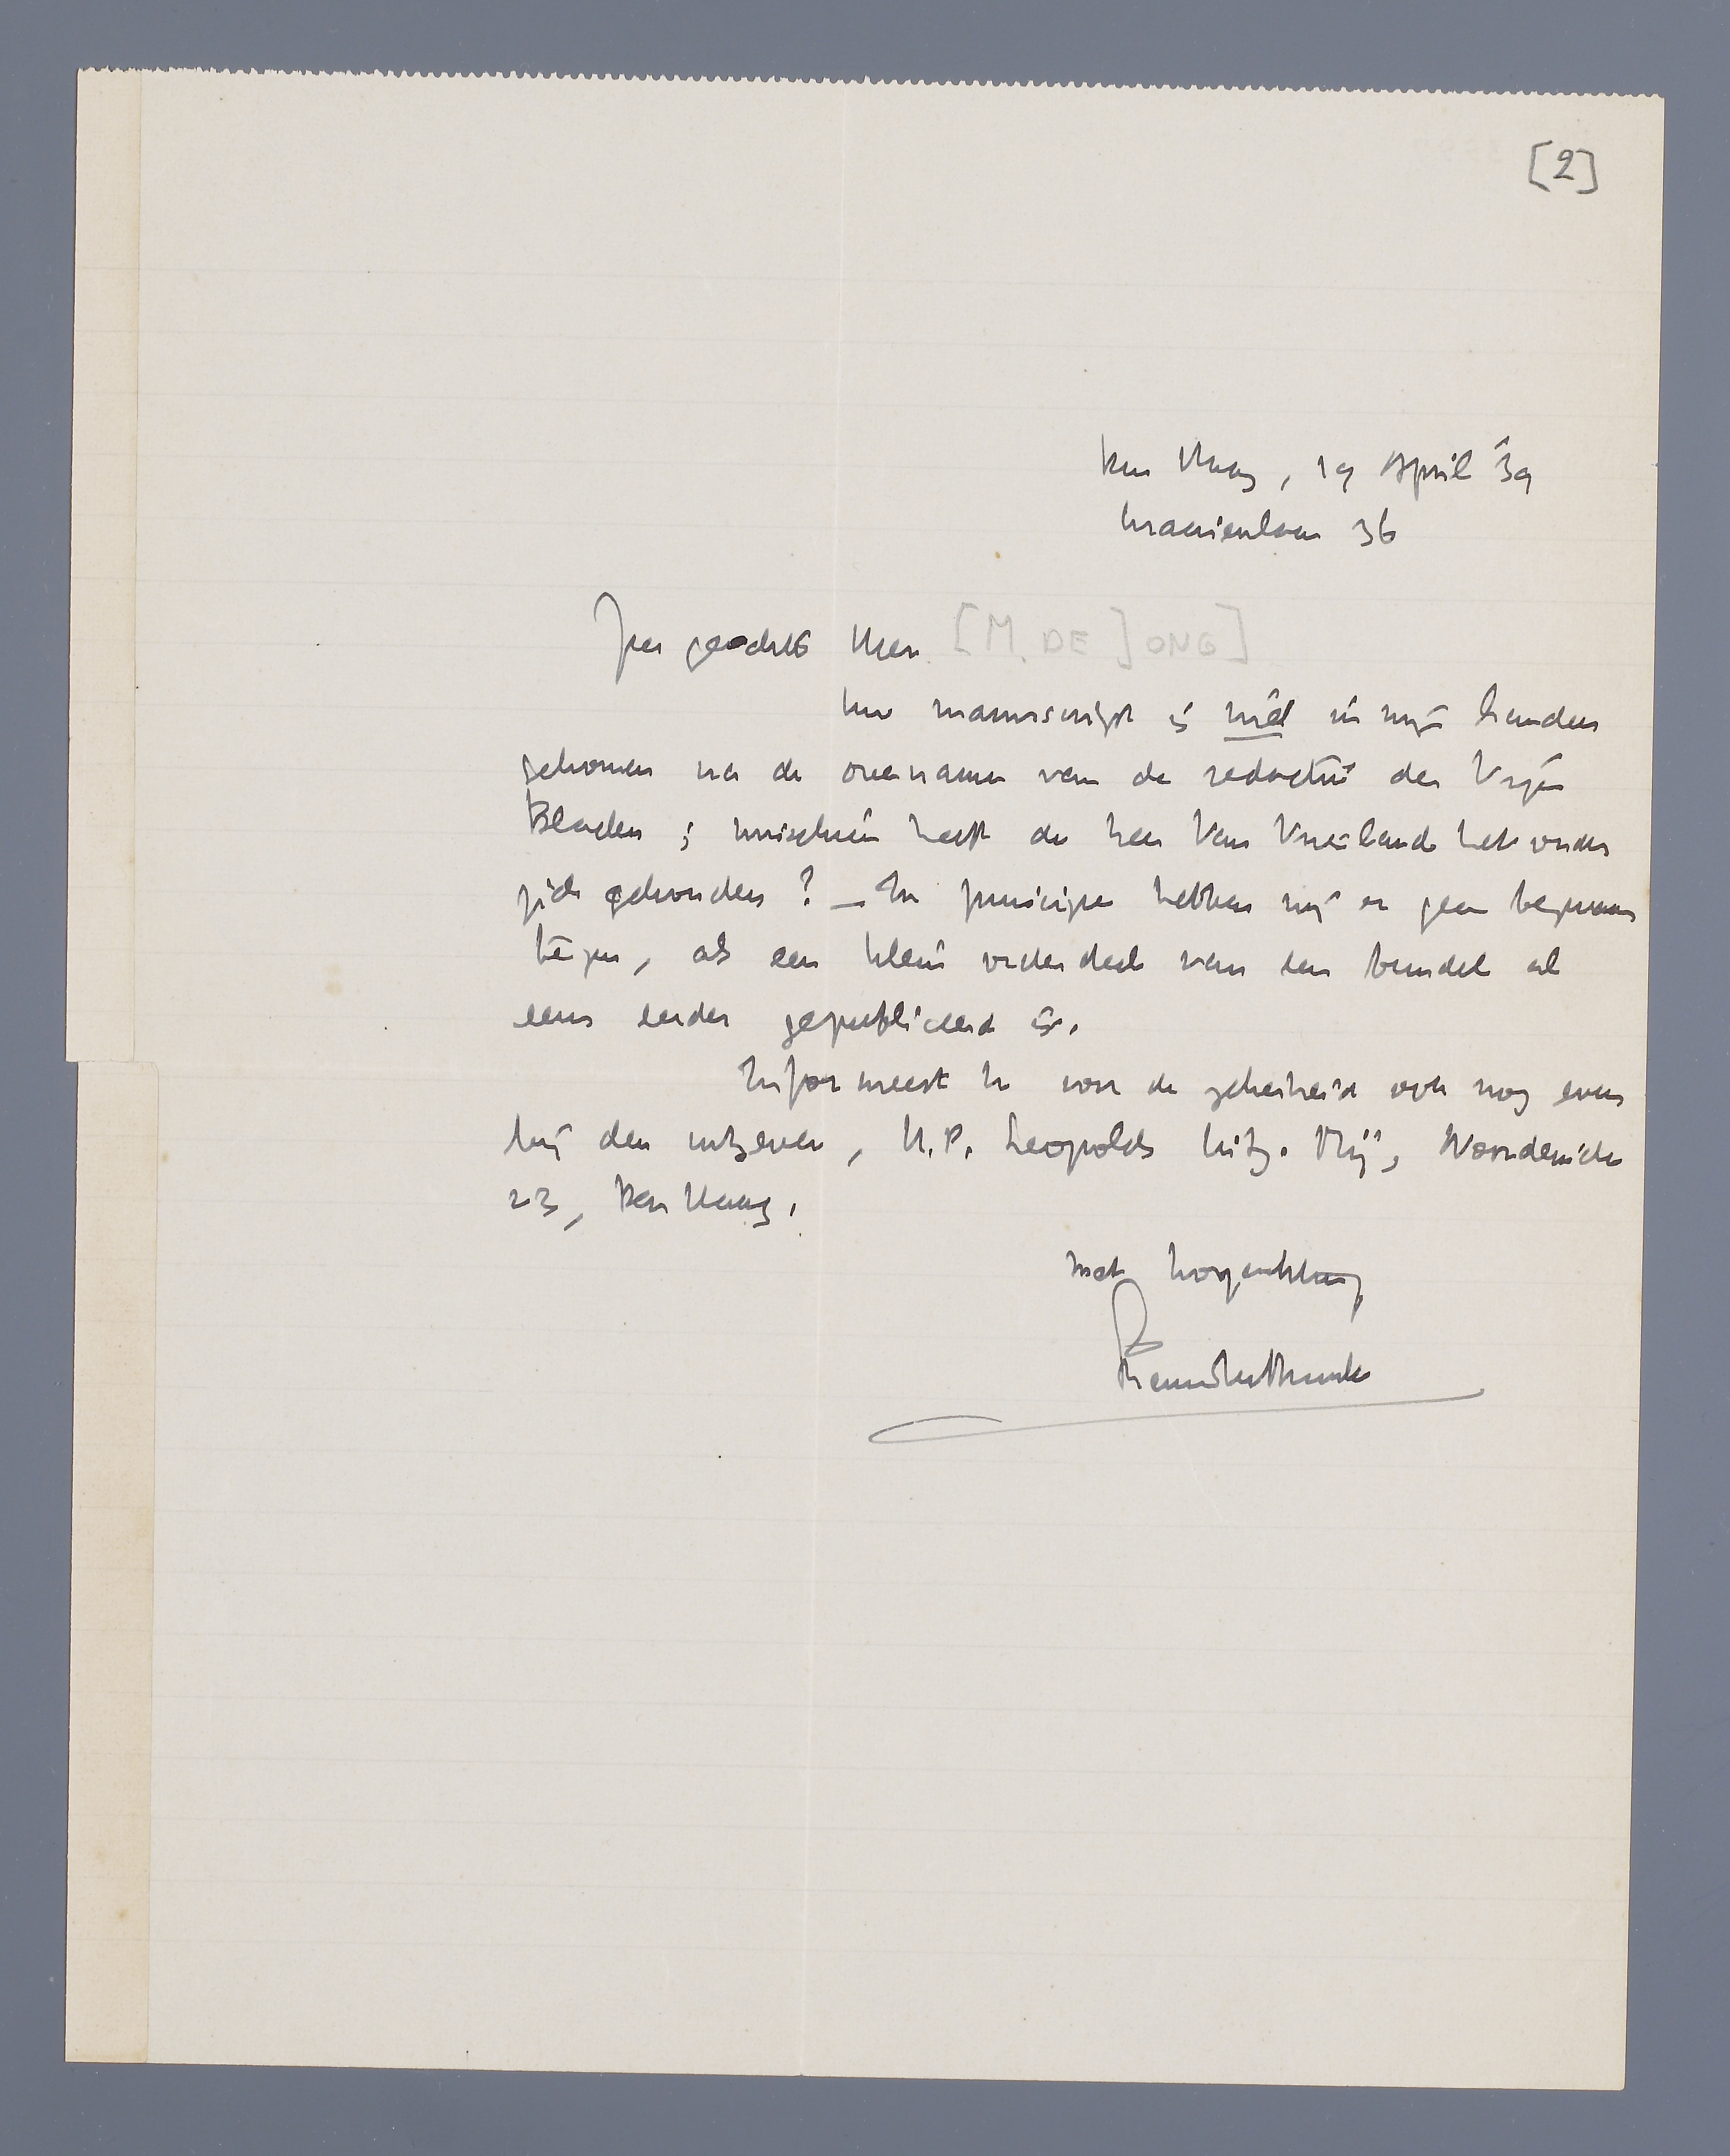 [2]
Den Haag, 19 April '39
Kraaienlaan 36
Zeer geachte Heer [M. DE JONG]
Uw manuscript is niet in mijn handen
gekomen na de overname van de redactie der Vrije
Bladen; misschien heeft de heer Van Vriesland het onder
zich gehouden? — In principe hebben wij er geen bezwaar
tegen, als een klein onderdeel van een bundel al
eens eerder gepubliceerd is.
Informeert U voor de zekerheid ook nog even
bij den uitgever, H.P. Leopolds Uitg. Mij, Noordeinde
23, Den Haag.
Met hoogachting
Menno ter Braak